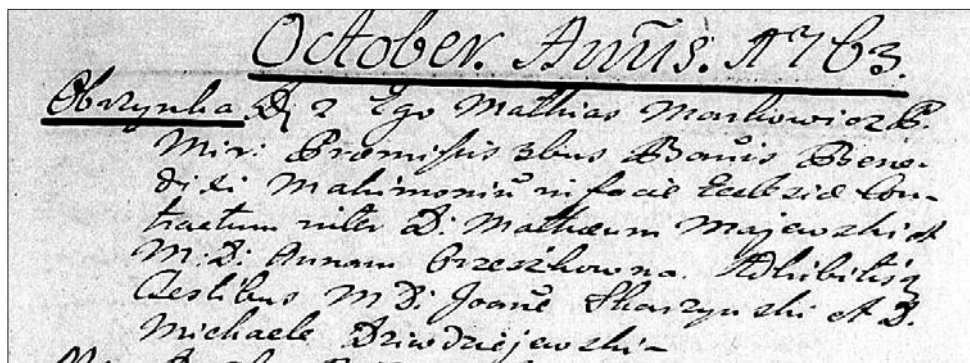 October. Anñs. 1763.
Obrzynka D 2 Ego Mathias Markowicz P.
Mir: Praemissis 3bus Bañis Bene-
dixi Matrimoniũ in facie Ecclesiae Con-
tractum inter D: Mathaeum Majewski et
M: D: Annam Orzeszkowna. Adhibitisq
Testibus M D: Joañe Skarzynski et D.
Michaele Dziwdziejewski-